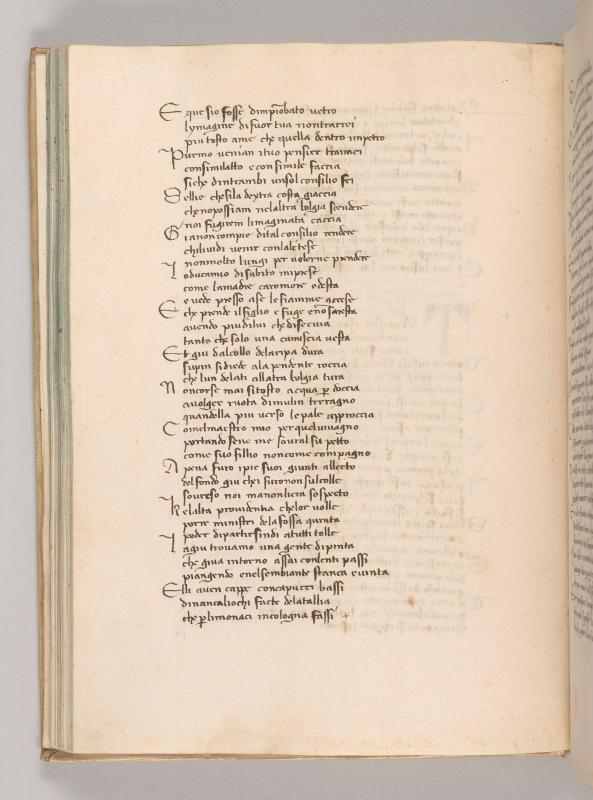 E quesio fosse dimpiobato vetro
lymagine di fuor tua nontrarrei
piu tosto ame che quella dentro impetro
Purmo venian ituo pensier tramei
consimilatto econsimile faccia
siche dintrambi unsol consilio fei
Sellie chesila dextra costa giaccia
chenoipossiam nelaltra bolgia scendere
noi fugirem limaginata caccia
Gianoncompie dital consilio rendere
chiliuidi venir conlaletese
nonmolto lungi per volerne prendere
Loducamio disubito miprese
come lamadre caromore edesta
e vede presso ase le fiamme accese
E che prende ilfiglio e fuge enosaresta
avendo piudilui che disecura
tanto che solo una camiscia vesta
Et giu dalcollo delaripa dura
supin sidiede ala pendente roccia
che lun delati allatra bolgia tura
Noncorse mai sitosto acqua per doccia
avolger ruota dimulin terragno
quandella piu verso lepale approccia
Comelmaestro mio perquelvivagno
portando sene me soural su petto
come suo fillio noncome compagno
Apena furo ipie suoi giunti allecto
delfondo giu chei furononsulcolle
souresso noi manonlicra sospecto
Kelalta providentia chelor volle
porre ministri delafossa quinta
poder dipartirsindi atutti tolle
Lagiu trovamo una gente dipinta
che giua intorno assai conlenti passi
piangendo enelsembiante stanca evinta
Elli avien cappe concapucci bassi
dinancaliochi facte delatallia
che perlimonaci incologna fassi